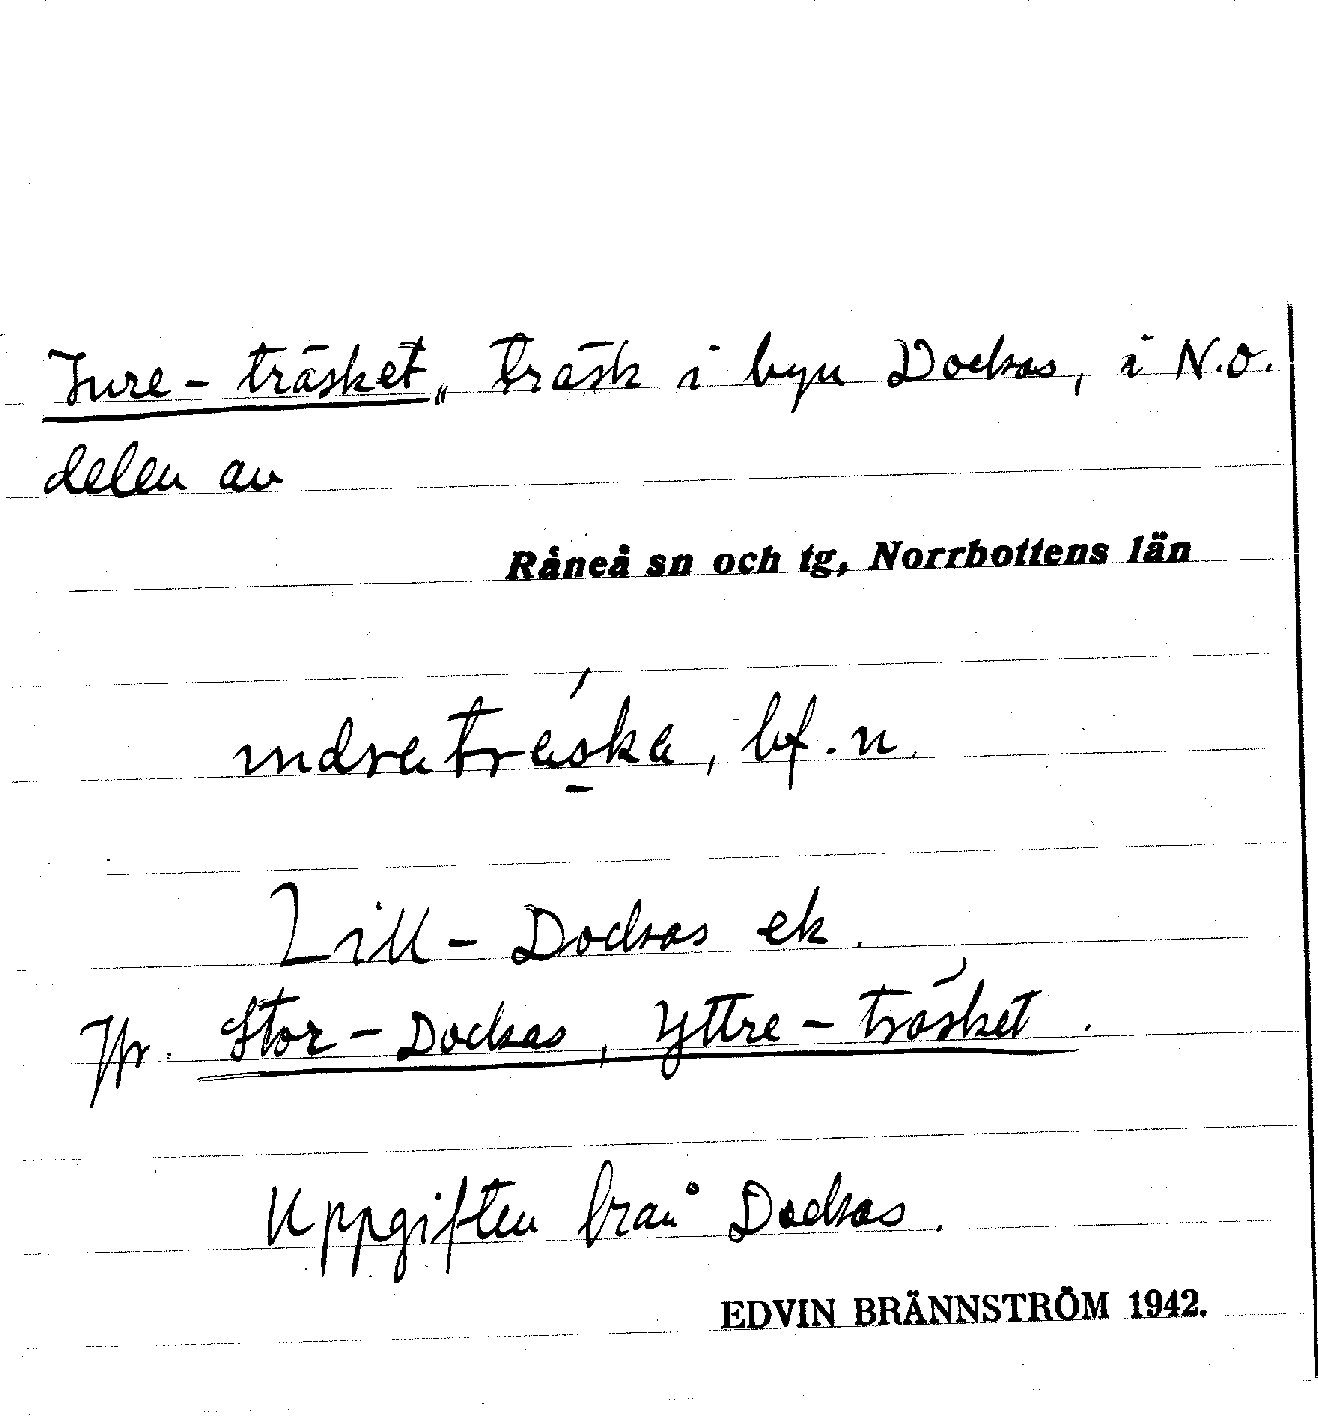 Inre-träsket,, träsk i byn Dockas, i N.O.
delen av
Råneå sn och tg, Norrbottens län
ındratrȧska, bf. n.
Lill-Dockas ek.
Jfr. Stor-Dockas, Yttre-träsket.
Uppgiften från Dockas.
EDVIN BRÄNNSTRÖM 1942.